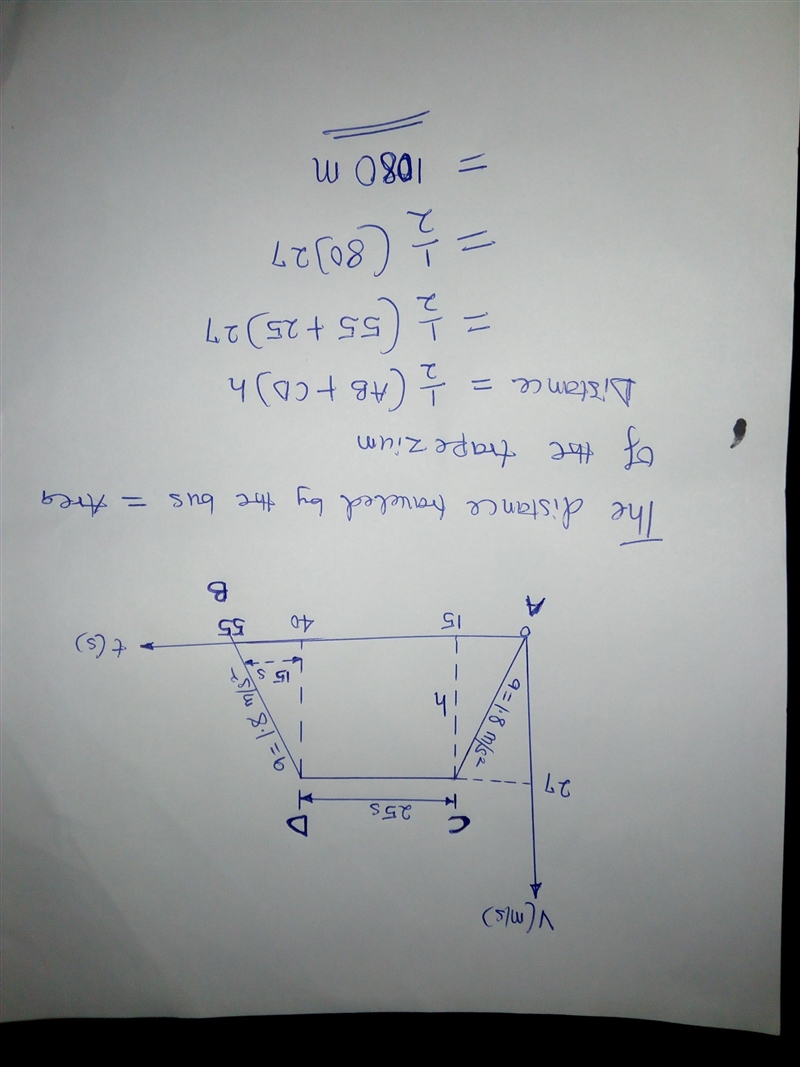 V(m/s)
C D
25s
27
a = 1.8 m/s²
h
a = 1.8 m/s²
15 s
0 15 40 55 t(s)
A B
The distance traveled by the bus = Area
of the trapezium
Distance = 1/2 (AB + CD)h
= 1/2 (55 + 25)27
= 1/2 (80)27
= 1080 m